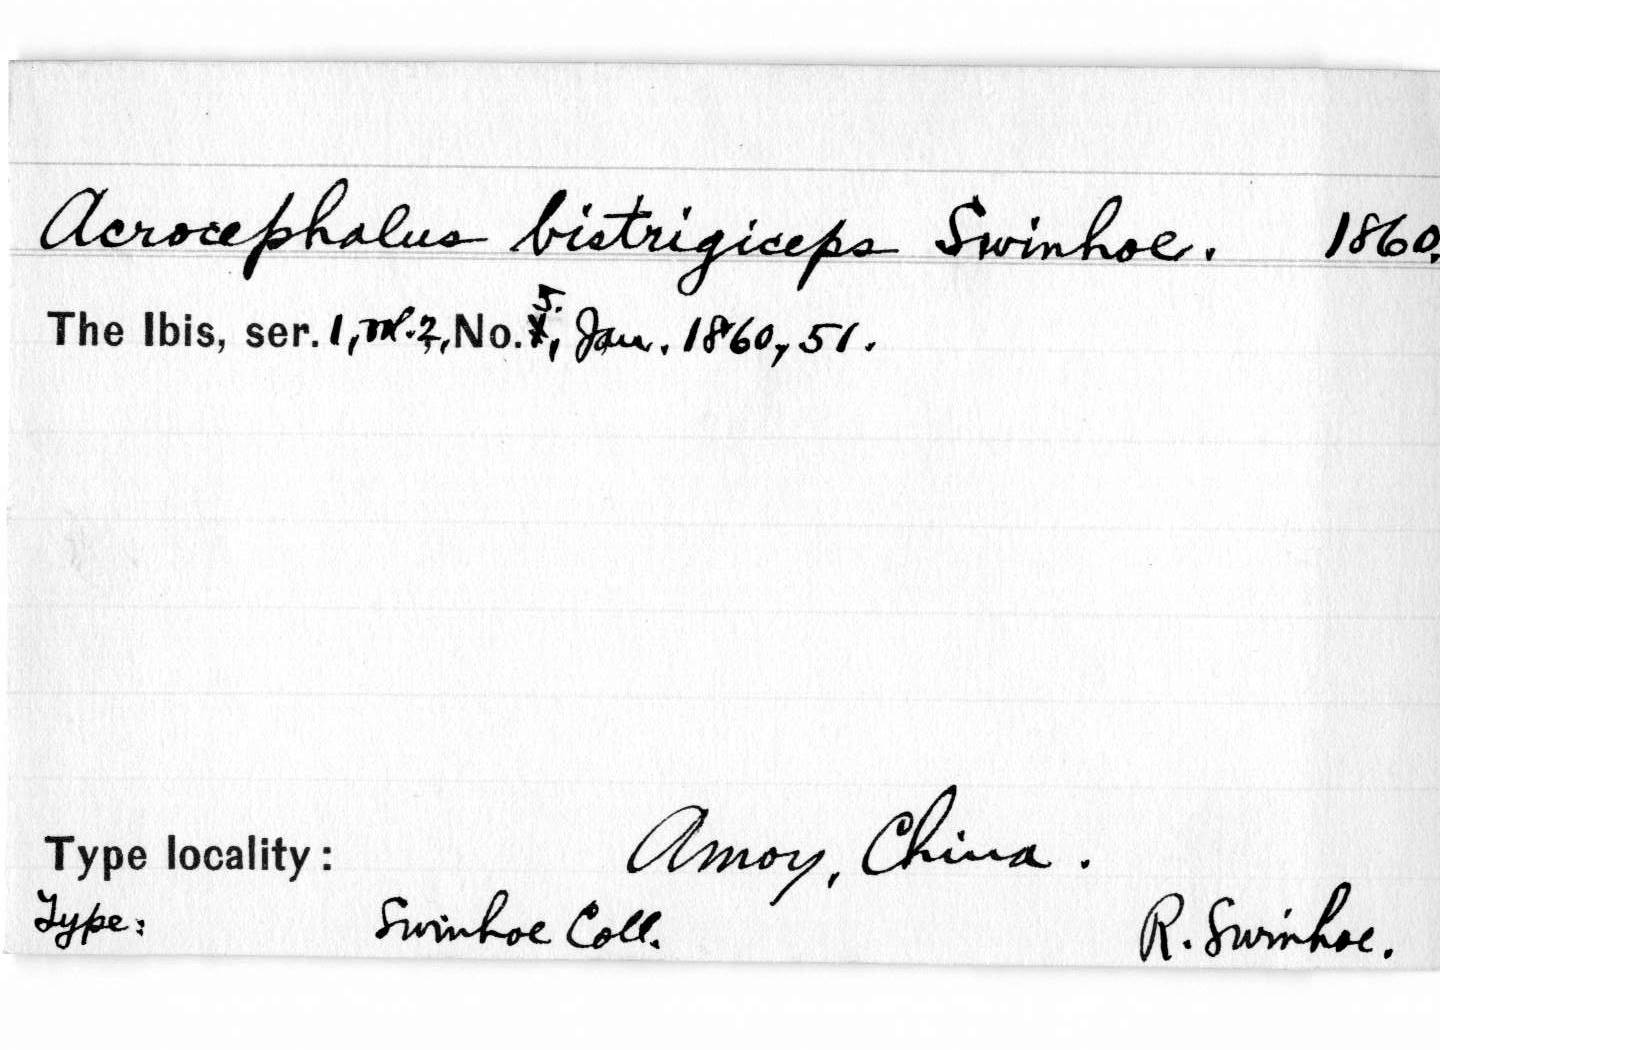 Acrocephalus bistrigiceps Swinhoe. 1860.
The Ibis, ser. 1, vol. 2, No. 5., Jan. 1860, 51.
Type locality: Amoy, China.
Type: Swinhoe Coll. R. Swinhoe.